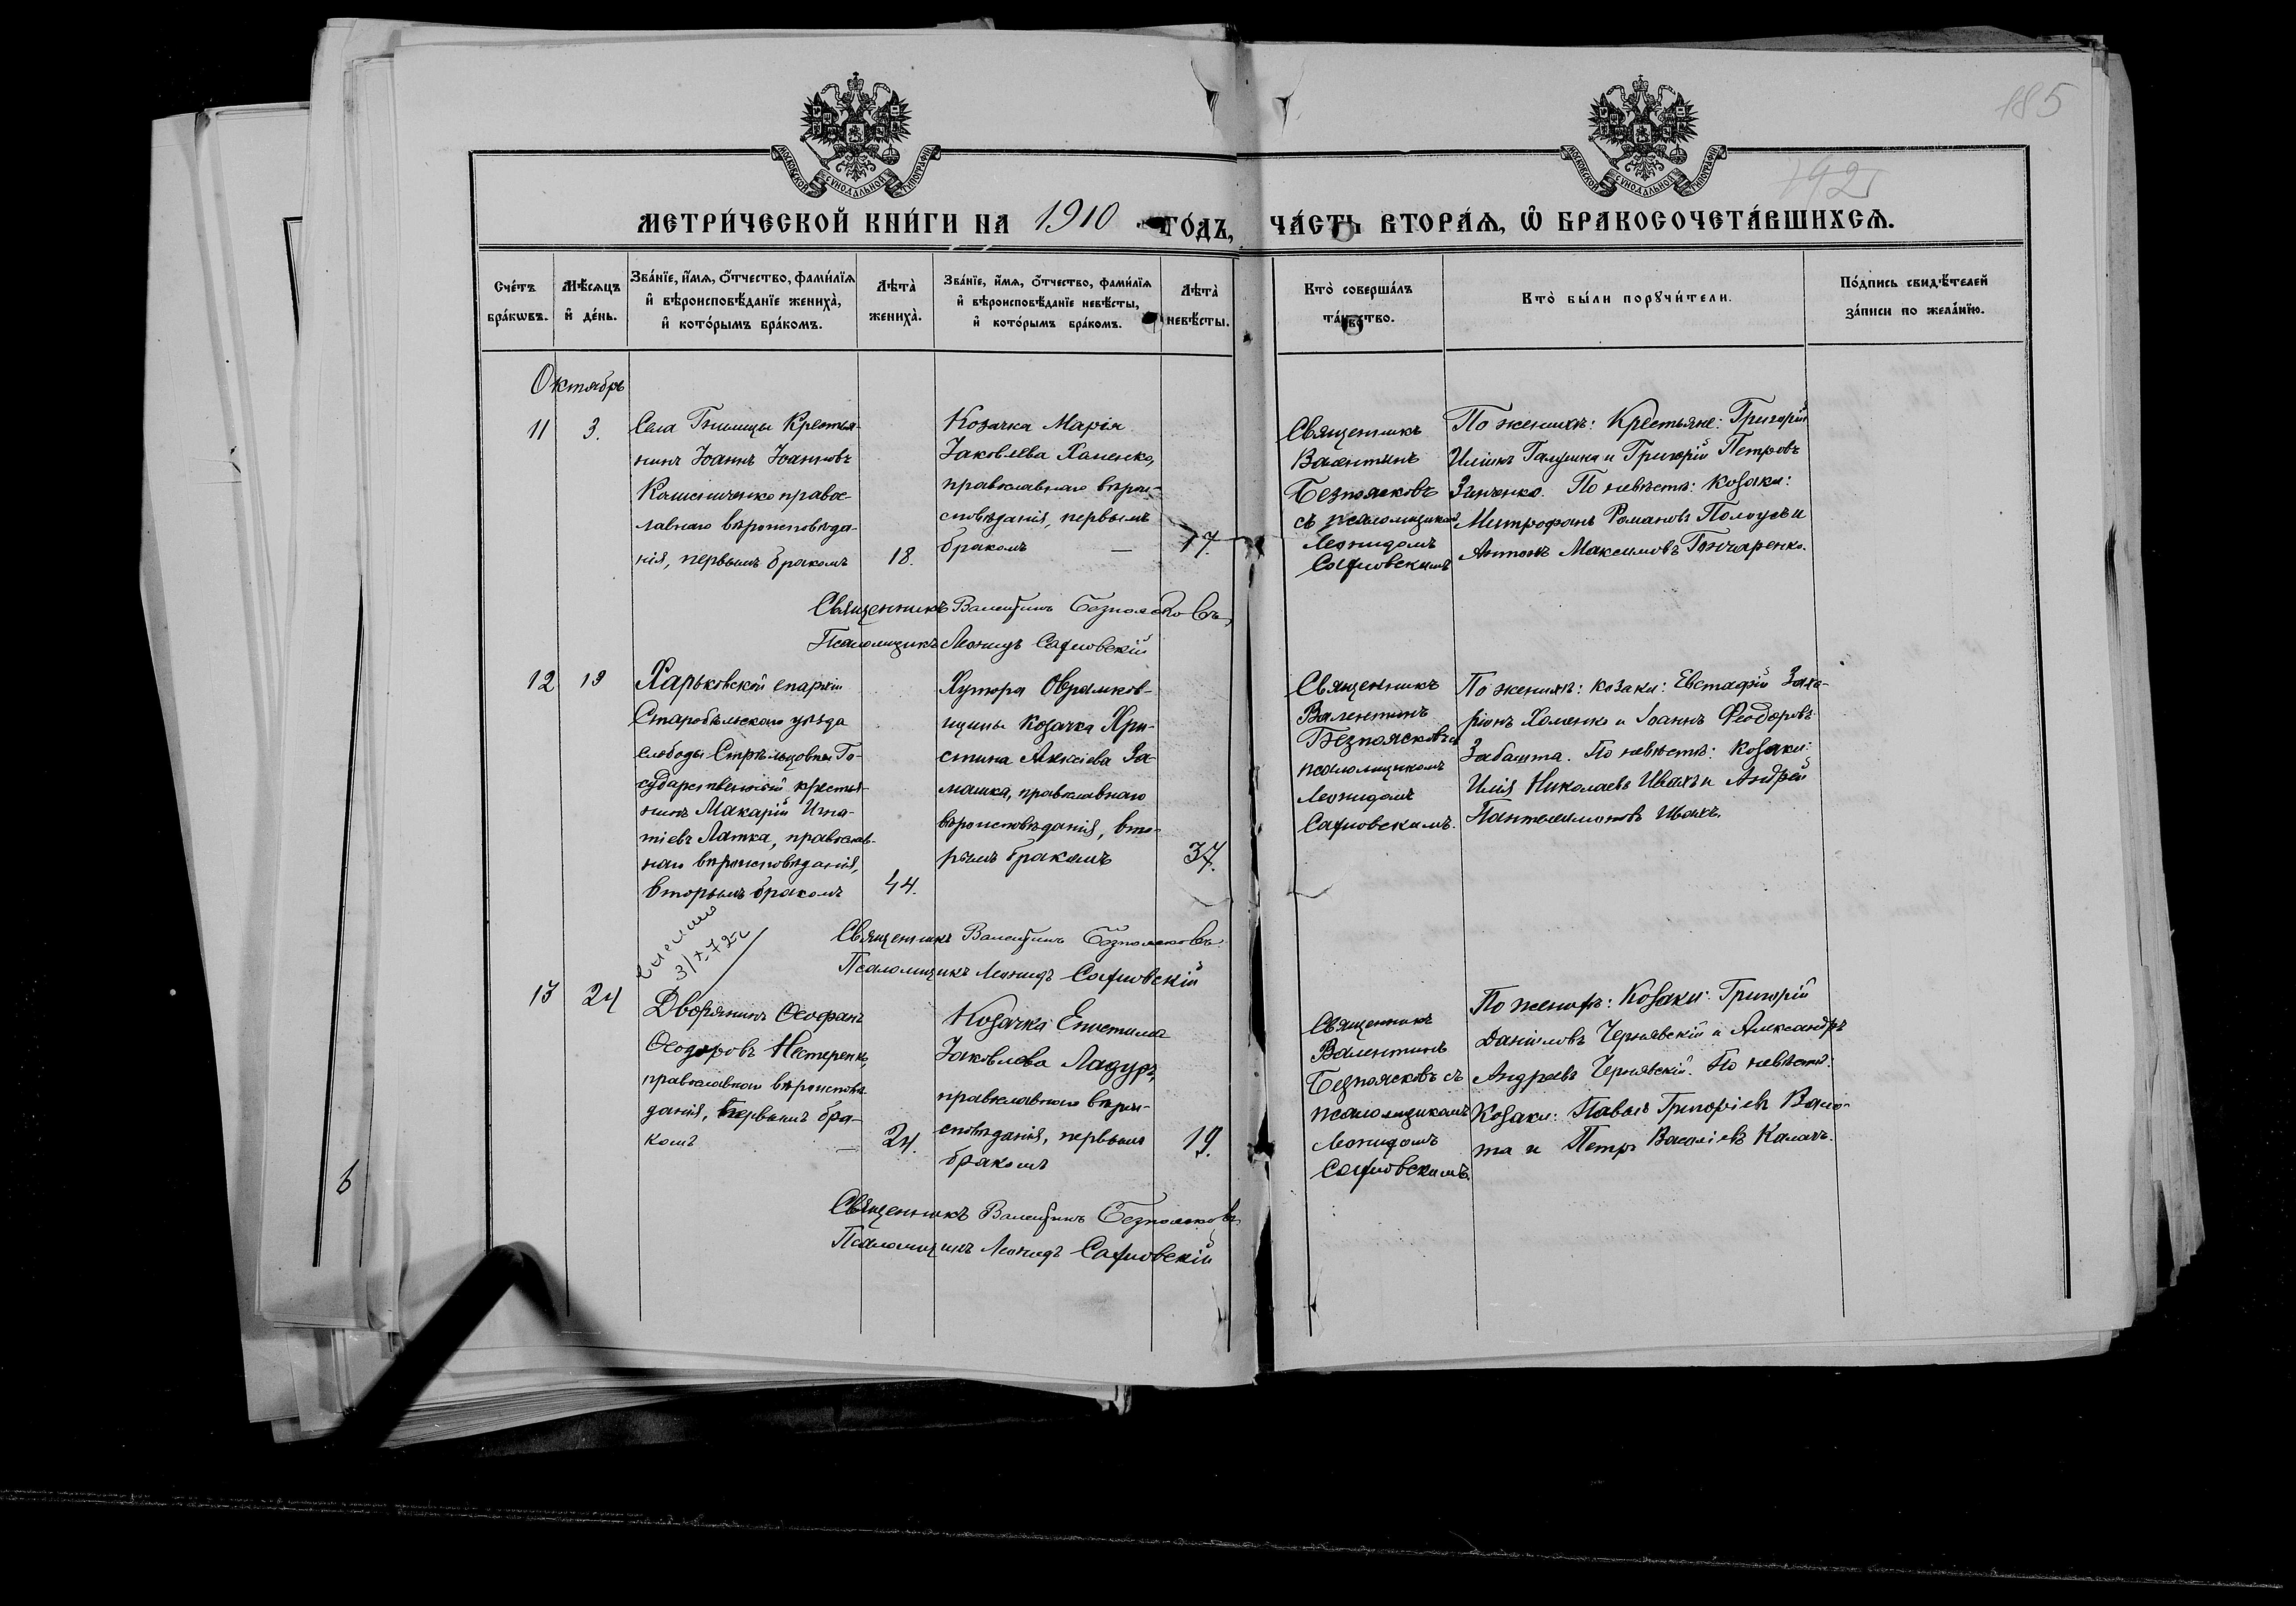 185
192
МОСКОВСКОЙ СУНОДАЛЬНОЙ ТИПОГРАФІИ
МОСКОВСКОЙ СУНОДАЛЬНОЙ ТИПОГРАФІИ
МЕТРИ́ЧЕСКОЙ КНИ́ГИ НА 1910 ГО́ДЪ,
ЧА́СТЬ ВТОРА́Ѧ, Ѽ БРАКОСОЧЕТА́ВШИХСѦ.
Сче́тъ бра́кѡвъ.
Мѣ́сѧцъ и҆ де́нь.
Зва́нїе, и҆́мѧ, ѻ҆́тчество, фами́лїѧ
и҆ вѣроисповѣ́данїе жениха̀,
и҆ кото́рымъ бра́комъ.
Лѣта̀ жениха̀.
Зва́нїе, и҆́мѧ, ѻ҆́тчество, фами́лїѧ
и҆ вѣроисповѣ́данїе невѣ́сты,
и҆ кото́рымъ бра́комъ.
Лѣта̀ невѣ́сты.
Кто̀ соверша́лъ
та́инство.
Кто̀ бы́ли порꙋчи́тели.
По́дпись свидѣ́телей
за́писи по жела́нїю.
Октябрь
11
3.
Села Гнилицы Крестья-
нинъ Іоаннъ Іоанновъ
правос-
лавнаго вѣроисповѣда-
нія, первымъ бракомъ
18.
Козачка Марія
Іаковлева Хоменко,
православнаго вѣрои-
сповѣданія, первымъ
бракомъ —
17.
Священникъ
Валентинъ
Безпоясковъ
съ псаломщикомъ
Леонидомъ
По женихѣ: Крестьяне: Григорій
Иліинъ Галушка и Григорій Петровъ
Зинченко. По невѣстѣ: Козаки:
Митрофанъ Романовъ Полоусъ и
Антонъ Максимовъ Гончаренко.
Священникъ Валентинъ Безпоясковъ
Псаломщикъ Леонидъ
12
19
Харьковской епархіи
Старобѣльскаго уѣзда
слободы Стрѣльцовки Го-
сударственный крестья-
нинъ Макарій Игна-
тіевъ Латка, православ-
наго вѣроисповѣданія,
вторымъ бракомъ
44.
Хутора
козачка Хри-
стина Алексіева За-
машка, православнаго
вѣроисповѣданія, вто-
рымъ бракомъ
37.
Священникъ
Валентинъ
Безпоясковъ съ
псаломщикомъ
Леонидомъ
По женихѣ: козаки: Евстафій Заха-
ріинъ Хоменко и Іоаннъ Феодоровъ
Забашта. По невѣстѣ: козаки:
Илія Николаевъ Ивахъ и Андрей
Пантелимоновъ Ивахъ.
Священникъ Валентинъ Безпоясковъ
Псаломщикъ Леонидъ
3/X.72г
13
24
Дворянинъ Ѳеофанъ
Ѳеодоровъ Нестеренко,
православнаго вѣроисповѣ-
данія, первымъ бра-
комъ —
24.
Козачка Епистима
Іаковлева Ладуръ,
православнаго вѣрои-
сповѣданія, первымъ
бракомъ
19.
Священникъ
Валентинъ
Безпоясковъ съ
псаломщикомъ
Леонидомъ
По женихѣ: Козаки: Григорій
Даніиловъ Чернявскій и Александръ
Андреевъ Чернявскій. По невѣстѣ:
Козаки: Павелъ Григоріевъ
и Петръ Василіевъ Калачъ.
Священникъ Валентинъ Безпоясковъ
Псаломщикъ Леонидъ